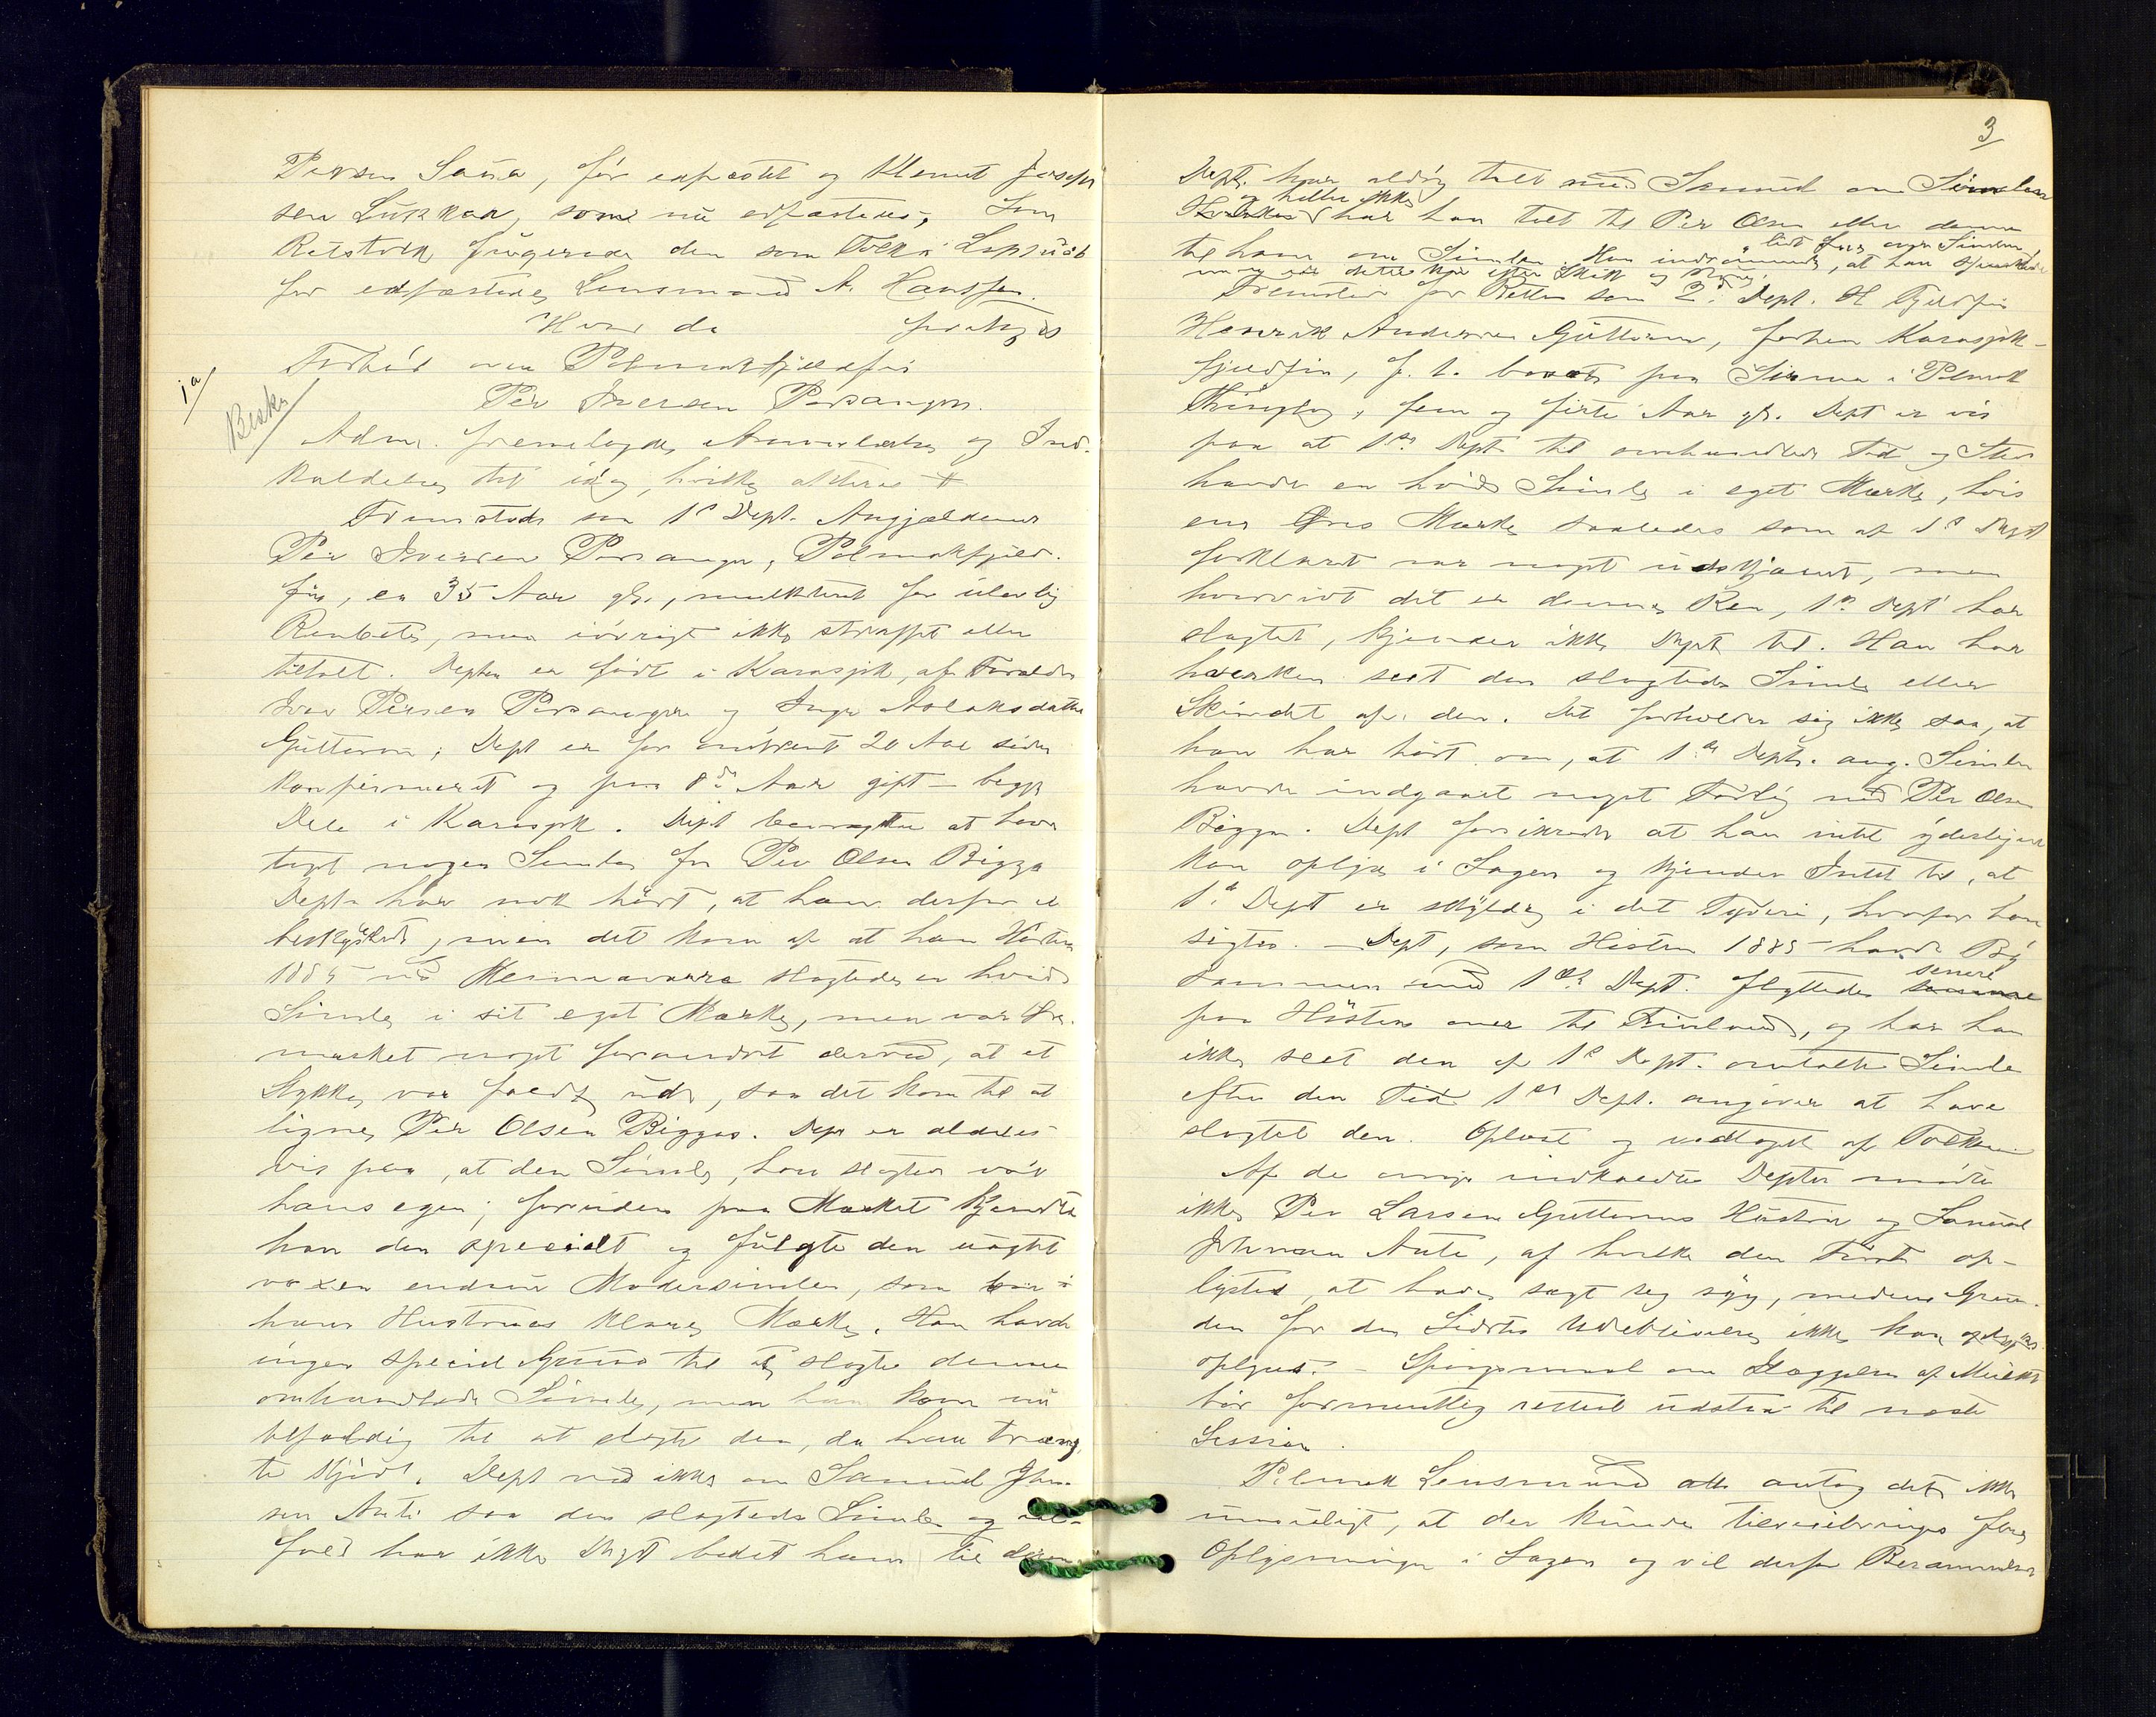 Persen Sara, før edfæstet og Klemet Josefs
sen Lukkar, som nu edfæstedes; Som
Retstolk fungerede den som Tolk i Lapsprog
før edfæstede Lensmand A. Hanssen.
Hvor da foretoges
1a/
Forhør over Polmakfjeldfin
Besk/
Per Iversen Porsanger.
Adm. fremlagde Anmeldelse og Ind-
kaldelse til idag, hvilke akteres
Fremstod som 1ste Dept. Angjældende
Per Iversen Porsanger, Polmakfjeld-
fin, er 35 Aar gl., mulkteret for ulovlig
Renbete, men iøvrigt ikke straffet eller
tiltalt. Depten er født i Karasjok, af Forældre
Iver Persen Porsanger og Inga Aslaksdatter
Guttorm; Dept er for omtrent 20 Aar siden
konfirmeret og paa 8de Aar gift - begge
Dele i Karasjok. Dept benægter at have
taget nogen Simle for Per Olsen Bigga
Dept har nok hørt, at han derfor er
beskyldt, men det kom af at han Høsten
1885 ved slagtede en hvid
Simle i sit eget Mærke, men var Øre-
mærket noget forandret derved, at et
Stykke var faldt ud, saa det kom til at
ligne Per Olsen Biggas. Dept er aldeles
vis paa, at den Simle, han slagted var
hans egen; foruden paa Mærket kjendte
han den specielt og fulgte den uagtet
voxen endnu Modersimlen, som bar
hans Hustrues klare Mærke. Han havde
ingen speciel Grund til at slagte denne
omhandlede Simle, men han kom nu
tilfældig til at slagte den, da han træng-
te Kjød. Dept ved ikke om Samuel John-
sen Anti saa den slagtede Simle og ial-
fald har ikke Dept bedet ham tie dermed
3
Dept. har aldrig talt med Samuel om Simlen
og heller ikke
har han talt til Per Olsen eller denne
lidt over Simlen
til ham om Simlen. Han indrømmede, at han
efter Skik og
Fremstod for Retten som 2. Dept. Fjeldfin
Henrik Andersen Guttorm, forhen Karasjok-
fjeldfin, f. t. boende paa Sirma i Polmak
Thinglag, fem og firti Aar gl. Dept er vis
paa at 1ste Dept til omhandlede Tid og Sted
havde en hvid Simle i eget Mærke, hvis
ene Øres Mærke saaledes som af 1ste Dept
forklaret var noget udskjaaret, men
hvorvidt det er denne Ren, 1ste Dept har
slagtet, kjender ikke Dept til. Han har
hverken seet den slagtede Simle eller
Skindet af den. Det forholder sig ikke saa, at
han har hørt om, at 1ste Dept. ang. Simlen
havde indgaaet noget Forlig med Per Olsen
Bigga. Dept forsikrede at han intet yderligere
kan oplyse i Sagen og kjender Intet til, at
1ste Dept er skyldig i det Tyveri, hvorfor han
sigtes. - Dept, som Høsten 1885 havde By
senere
sammen med 1ste Dept. flyttede
paa Høsten over til Finland, og har han
ikke seet den af 1ste Dept. omtalte Simle
efter den Tid 1ste Dept. angiver at have
slagtet den. Oplæst og vedtaget af Tolken
Af de øvrige indkaldte Depter mødte
ikke Per Larsen Guttorms Hustru og Samuel
Johnsen Anti, af hvilke den Første op-
lystes, at have sagt sig syg, medens Grun-
den for den Sidstes Udeblivelse ikke kan
oplyses. - Spørgsmaal om af Mulkt
bør formentlig rettest udstaa til næste
Session.
Polmak Lensmand antog det ikke
umuligt, at der kunde tilveiebringes flere
Oplysninger i Sagen og vil derfor Berammelse